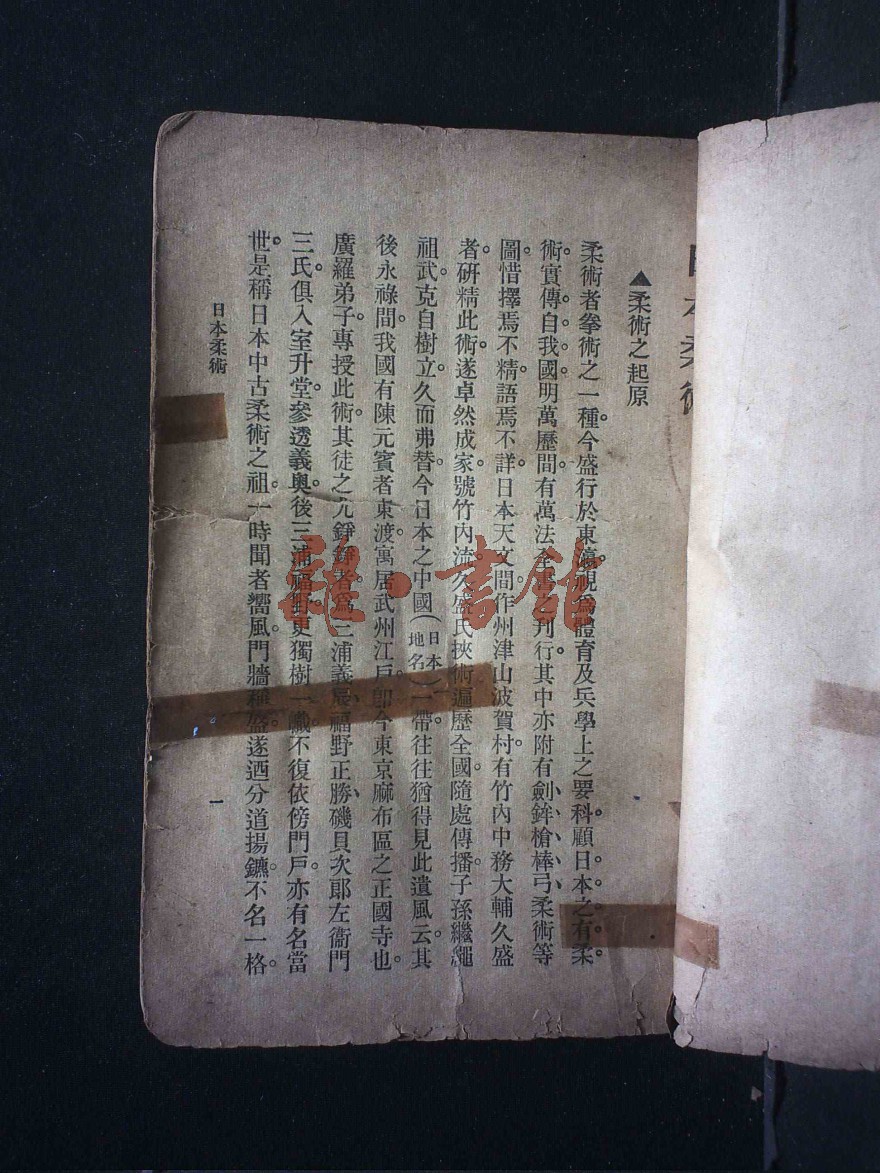 日本柔術
▲柔術之起原
柔術者拳術之一種。今盛行於東瀛。視爲體育及兵學上之要科。顧日本之有柔
術。實傳自我國。明萬歷間有萬法全書之刊行。其中亦附有劍、鉾、槍、棒、弓、柔術等
圖。惜擇焉不精。語焉不詳。日本天文間作州津山波賀村。有竹內中務大輔久盛
者。研精此術。遂卓然成家。號竹內流。久盛氏挾術遍歷全國。隨處傳播。子孫繼繩
祖武。克自樹立。久而弗替。今日本之中國(日本地名)一帶往往猶得見此遺風云。其
後永祿間。我國有陳元賓者東渡。寓居武州江戶。卽今東京麻布區之正國寺也。
廣羅弟子。專授此術。其徒之尤錚錚者。爲三浦義辰、福野正勝、磯貝次郞左衞門
三氏。俱入室升堂。參透義奧。後三浦福野更獨樹一幟。不復依傍門戶。亦有名當
世。是稱日本中古柔術之祖。一時聞者嚮風。門牆稱盛。遂迺分道揚鑣。不名一格。
日本柔術
一
雜·書館